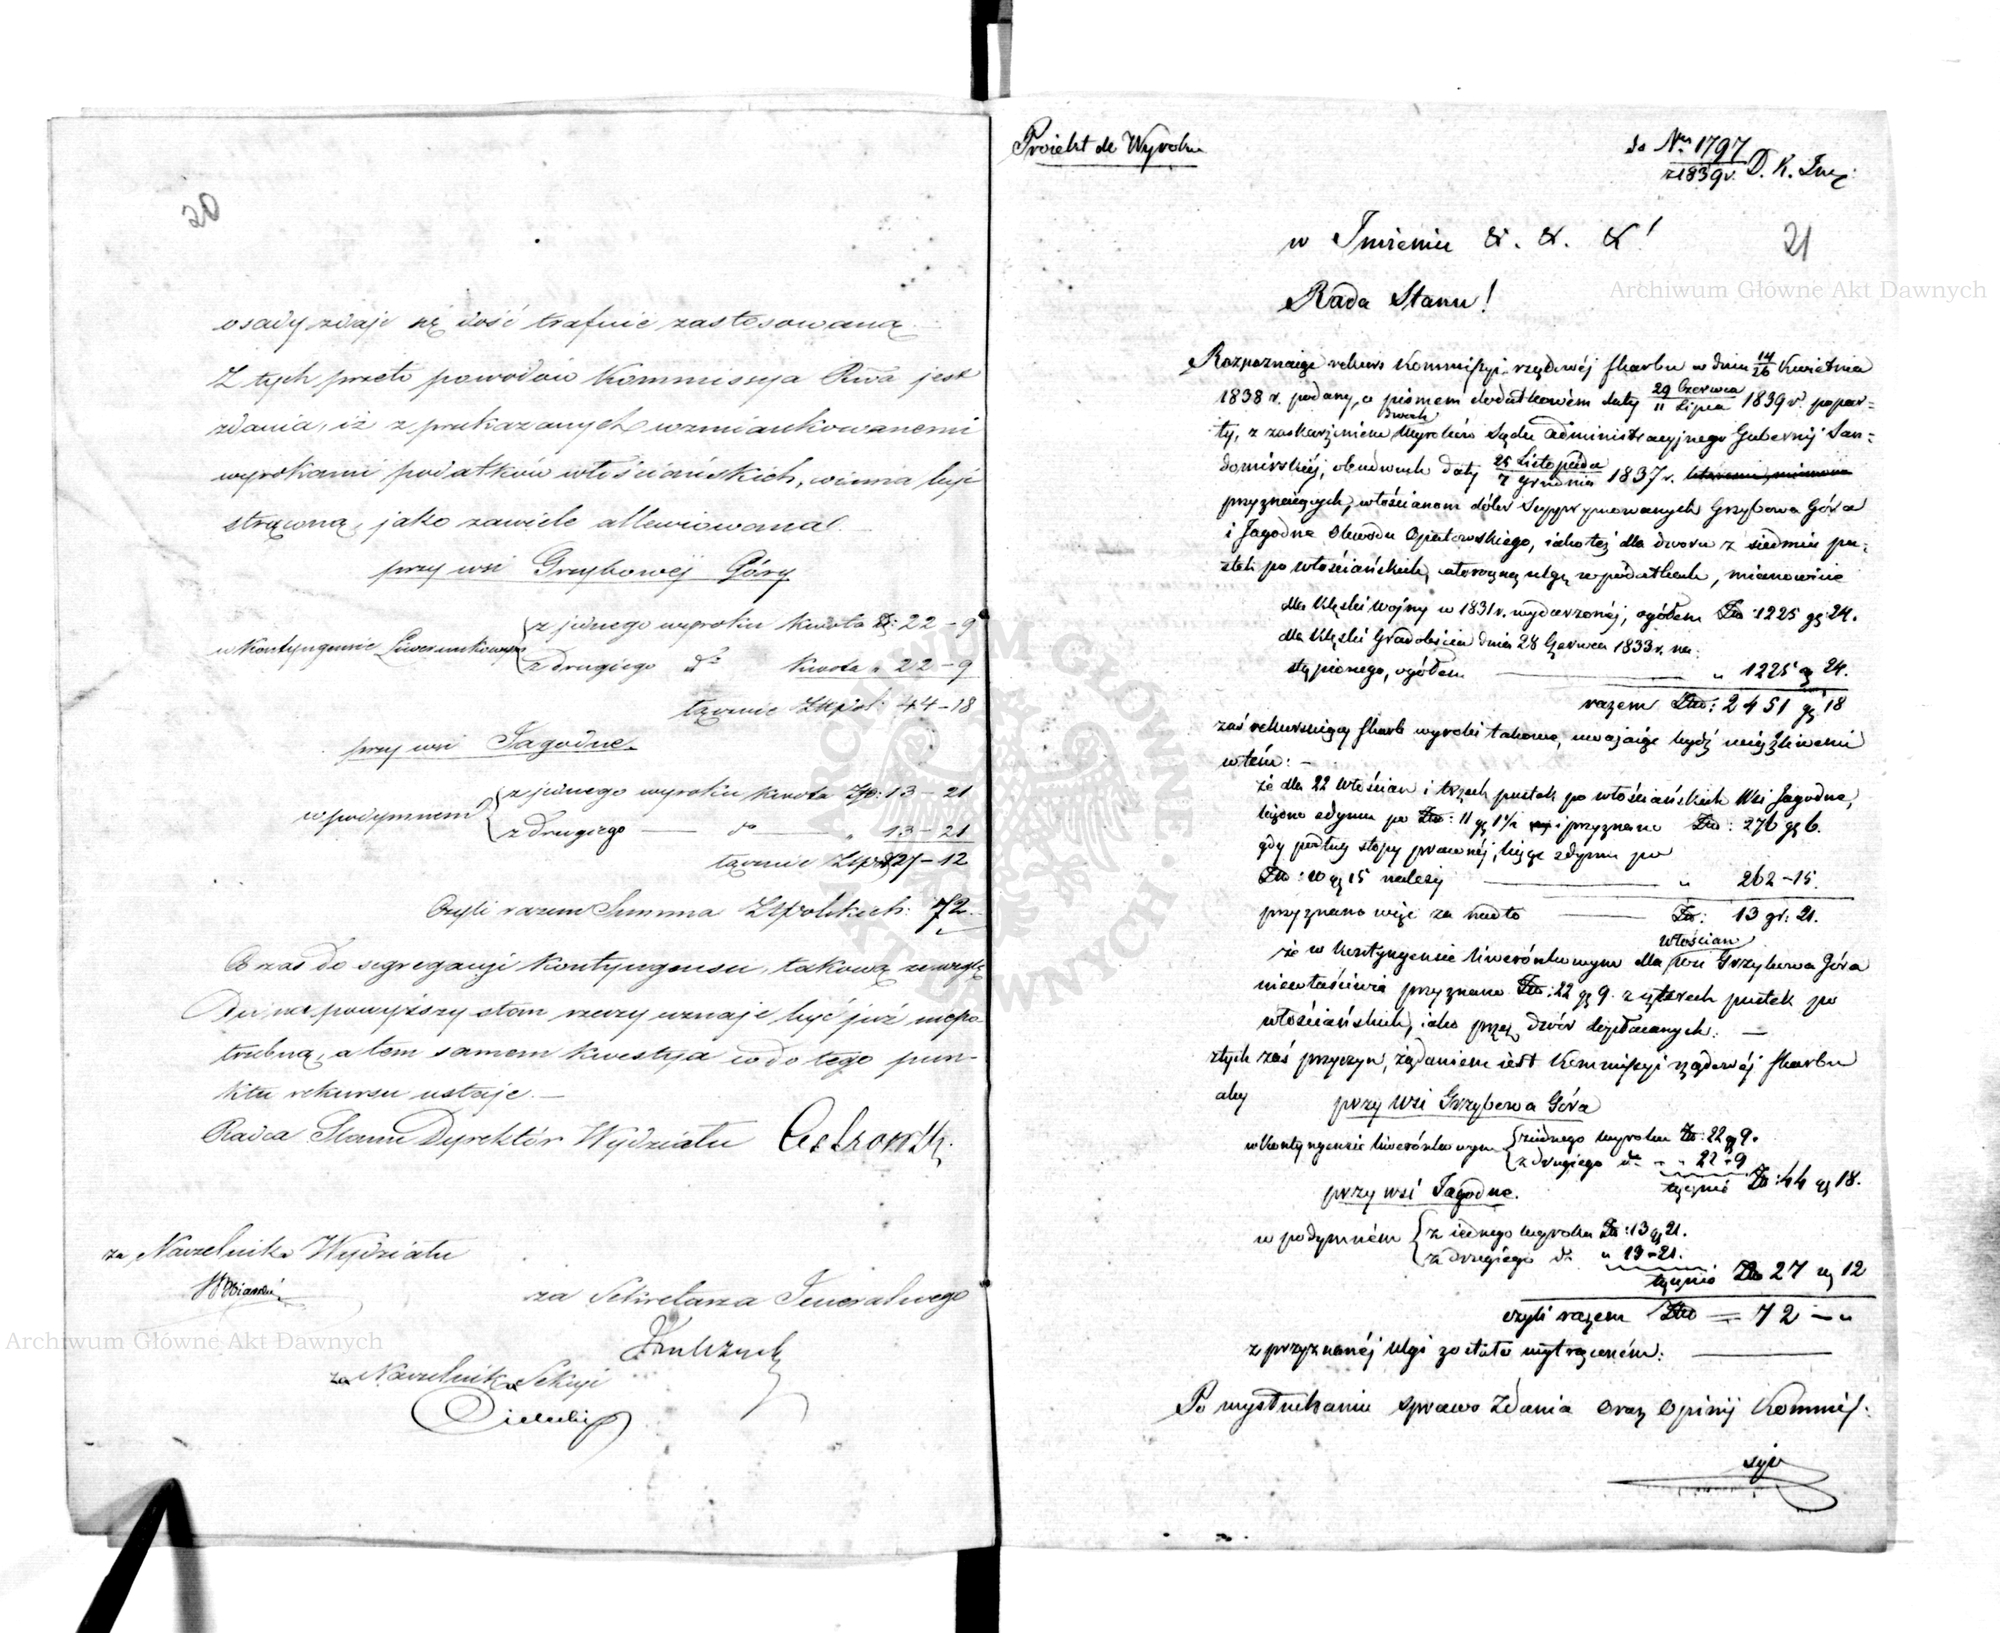 20
osady zdaje się dość trafnie zastosowaną.
Z tych przeto powodów Kommissya Rwa jest
zdania, iż z przekazanych wzmiankowanemi
wyrokami podatków włościańskich, winna być
strąconą, jako zawiele allewiowana
przy wsi Grzybowéj Góry
w kontyngensie Liwerunkowym
z jednego wyroku kwota Zł: 22 – 9
z drugiego do kwota „ 22 – 9
łącznie Złpol: 44 – 18
przy wsi Jagodne
w podymnem
z jednego wyroku kwota Złp: 13 – 21
z drugiego — do — „ 13 – 21
łącznie Złp: 27 – 12
Czyli razem Summa Złpolskich: 72.
Co zaś do segregacyi kontyngensu, takową ze wzglę
du na powyższy stan rzeczy uznaje być już niepo
trzebną, a tem samem kwestya co do tego pun-
ktu rekursu ustaje. —
Radca Stanu Dyrektór Wydziału
za Naczelnika Wydziału
za Sekretarza Jeneralnego
za Naczelnika Sekcyi
Proiekt do Wyroku
do Nru 1797
z 1839 r. D. K. Inz:
21
w Imieniu &. &. &!
Rada Stanu!
Rozpoznaiąc rekurs Kommissyi rządowéj Skarbu w dniu 14/26 Kwietnia
1838 r. podany, a pismem dodatkowém daty 29 Czerwca/11 Lipca 1839 r. popar=
ty, z zaskarżeniem dwóch Wyroków Sądu Administracyjnego Gubernij San=
domirskiéj, obudwóch daty 25 Listopada/7 Grudnia 1837 r.
przyznaiących, włościanom dóbr Suppr ymowanych Grzybowa Góra
i Jagodne Obwodu Opatowskiego, iako téż dla dworu z siedmiu pu=
stek po włościańskich, ulgę w podatkach, mianowicie
dla klęski Wojny w 1831 r. wydarzonéj, ogółem Złp 1225 gr 24.
dla klęski Gradobicia dnia 28 Czerwca 1833 r. na=
stąpionego, ogółem — „ 1225 gr 24.
razem Złp: 2451 gr 18
zaś rekursuiący Skarb wyroki takowe, uważaiąc bydź uciążliwemi
w tém: –
że dla 22 Włościan i trzech pustek po włościańskich Wsi Jagodne,
licząc z dymu po Złp: 11 gr 1½ przyznano Złp: 276 gr 6.
gdy podług stopy prawnéj, licząc z dymu po
Złp: 10 gr 15 należy — „ 262 – 15.
przyznano więc za nadto — Złp: 13 gr: 21.
że w Kontyngensie liwerónkowym dla włościan wsi Grzybowa Góra
niewłaściwie przyznano Złp: 22 gr 9. z czterech pustek po
włościańskich, iako przez dwór opłacanych: —
z tych zaś przyczyn, żądaniem iest Kommissyi rządowéj Skarbu
aby
przy Wsi Grzybowa Góra
w Kontyngensie liwerónkowym
z iednego wyroku Złp: 22 gr 9.
z drugiego do „ „ 22 – 9
łącznie Złp: 44 gr 18.
przy wsi Jagodne.
w podymném
z iednego wyroku Złp: 13 gr 21.
z drugiego do „ 13 – 21.
łącznie Złp 27 gr 12
czyli razem Złp = 72 — „
z przyznanéj ulgi zostało wytrąconém: —
Po wysłuchaniu sprawozdania oraz Opinij Kommis:
syi
Archiwum Główne Akt Dawnych
Archiwum Główne Akt Dawnych
ARCHIWUM GŁÓWNE AKT DAWNYCH